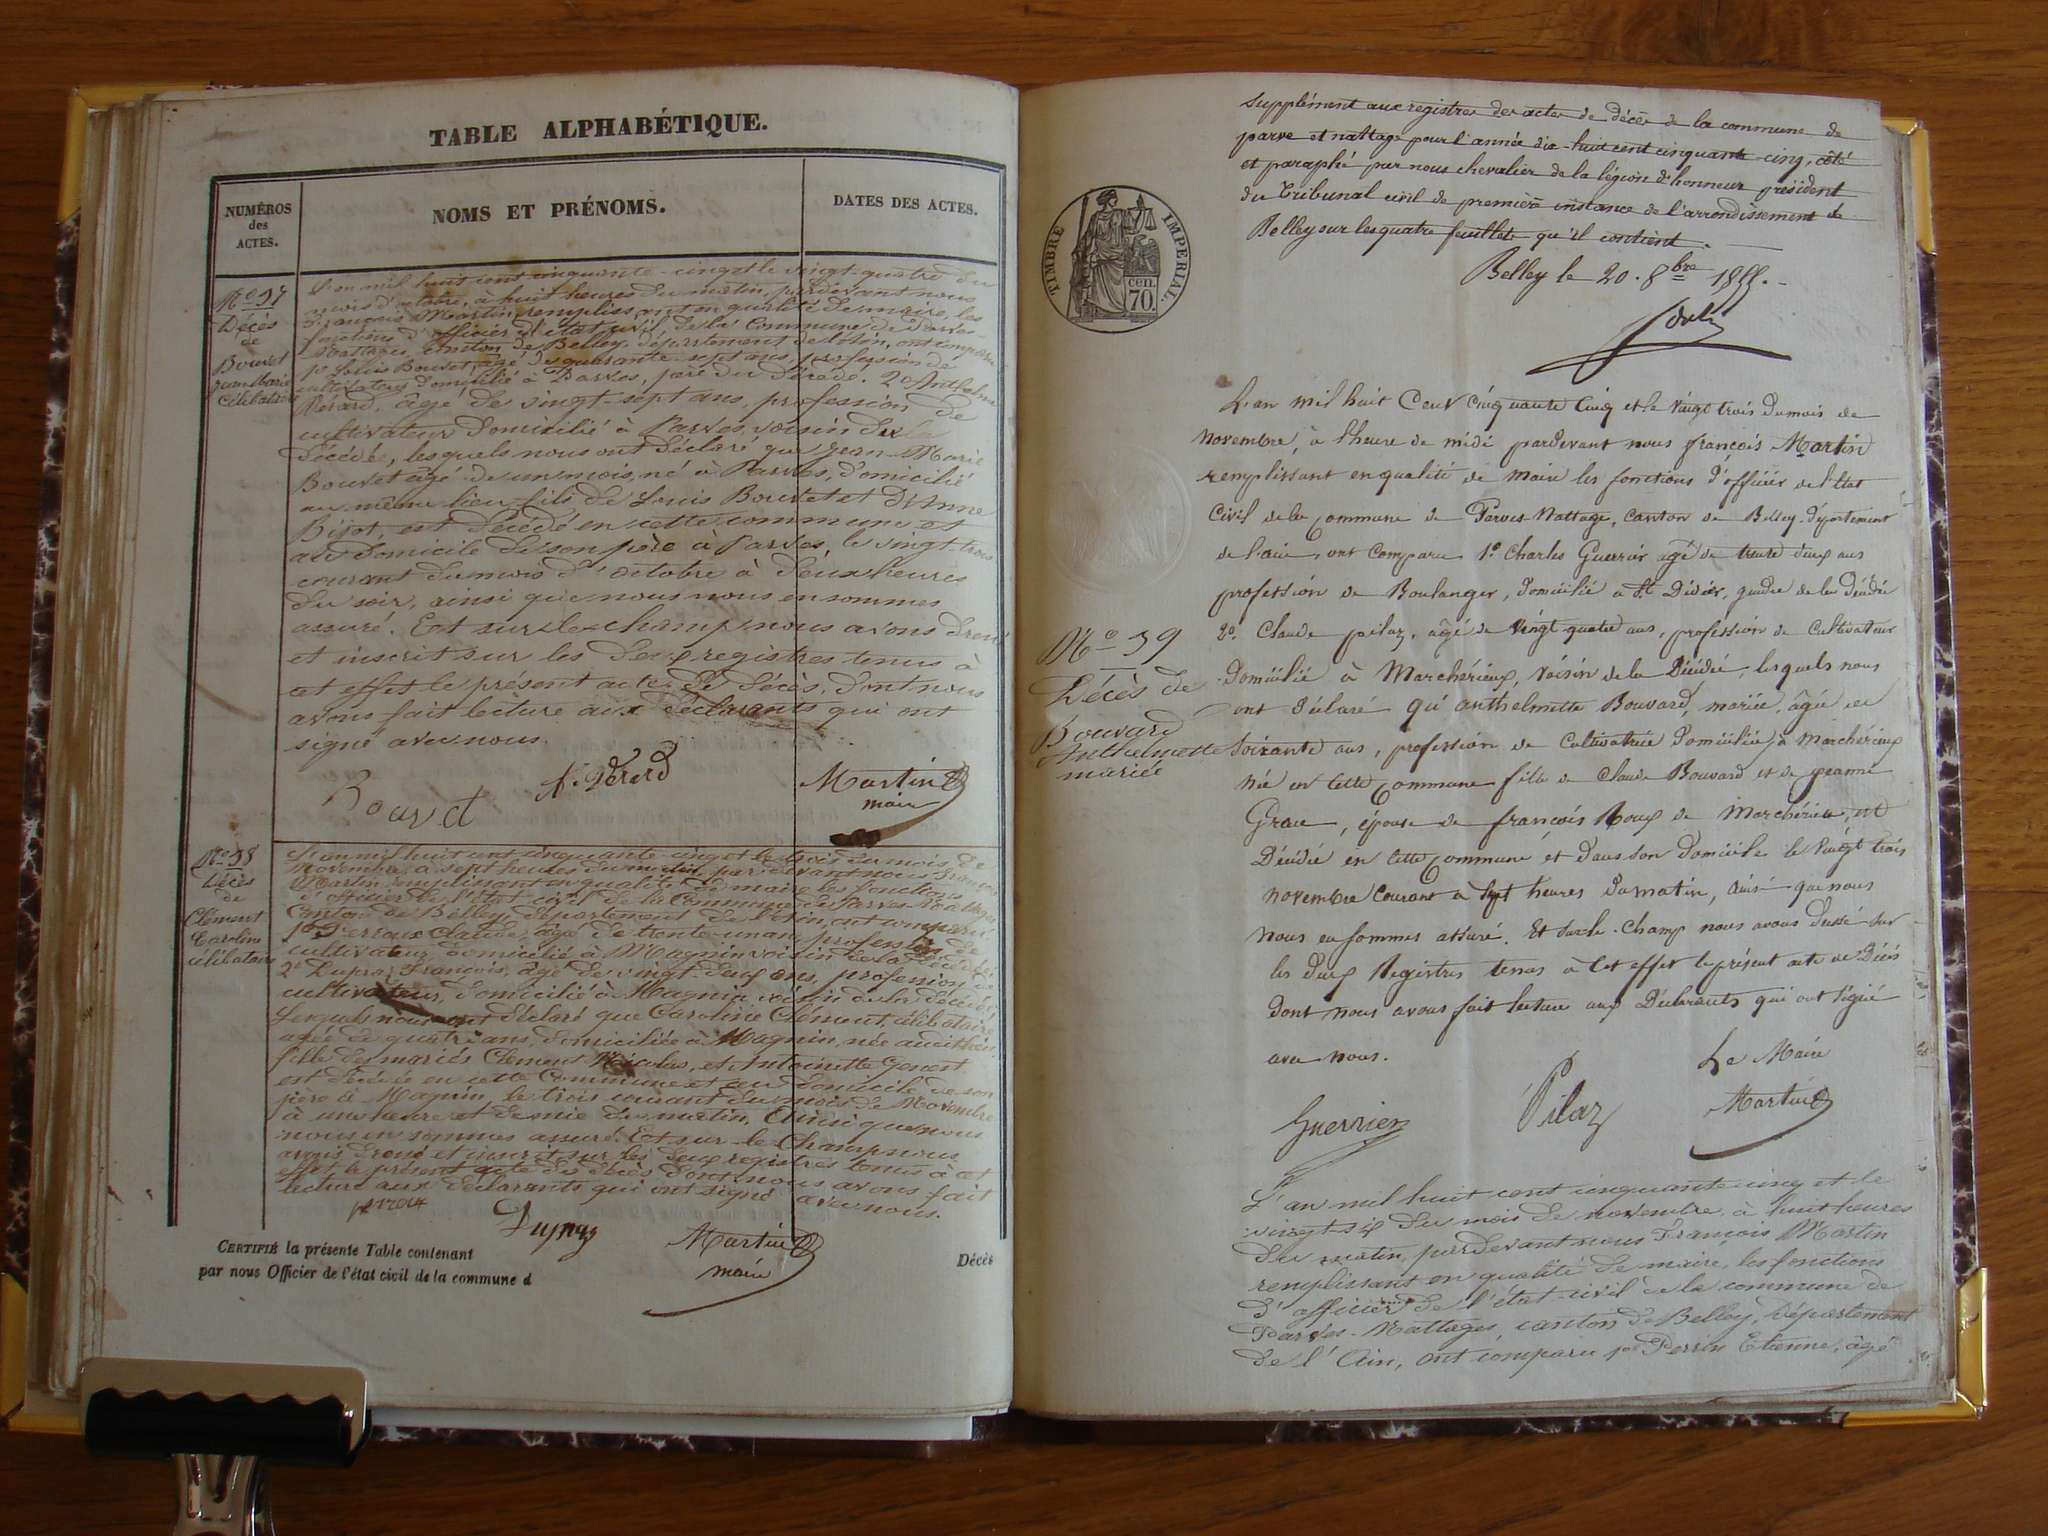 TABLE ALPHABÉTIQUE.
NUMÉROS
des
ACTES.
NOMS ET PRÉNOMS.
DATES DES ACTES.
No 37
Décès
de
Bouvet
Jean Marie
célibataire
L'an mil huit cent cinquante-cinq et le vingt-quatre du
mois d'octobre, à huit heures du matin, pardevant nous
François Martin remplissant en qualité de maire, les
fonctions d'officier d'état civil, de la Commune de Parves-
Nattages, canton de Belley, département de l'Ain, ont comparu
1o Louis Bouvet, âgé de quarante-sept ans, profession de
cultivateur, domicilié à Parves, père du décédé. 2o Anthelme
Pérard, âgé de vingt-sept ans, profession de
cultivateur domicilié à Parves, voisin de la
décédée, lesquels nous ont déclaré que Jean-Marie
Bouvet âgé de un mois, né à Parves, domicilié
au même lieu, fils de Louis Bouvet et D'Anne
est décédé en cette commune et
au domicile de son père à Parves, le vingt-trois
courant du mois d'octobre à deux heures
du soir, ainsi que nous nous en sommes
assuré. Et sur-le-champ nous avons dressé
et inscrit sur les deux registres tenus à
cet effet le présent acte de décès, dont nous
avons fait lecture aux déclarants qui ont
signé avec nous.
Bouvet A. Pérard Martin
maire
No 38
Décès
de
Clément
Caroline
célibataire
L'an mil huit cent cinquante-cinq et le trois du mois de
Novembre à sept heures du matin, par devant nous François
Martin remplissant en qualité de maire les fonctions
d'officier de l'état civil de la Commune de Parves-Nattages
Canton de Belley, département de l'Ain, ont comparu
1o Claude, âgé de trente-un ans, profession de
cultivateur, domicilié à Magnin voisin de la décédée
2o François, âgé de vingt deux ans, profession de
cultivateur, domicilié à Magnin, voisin de la décédée
Lesquels nous ont déclaré que Caroline Clément, célibataire
agée de quatre ans, domiciliée à Magnin, née audit lieu
fille des mariés Clément Nicolas, et Antoinette Genest
est décédée en cette Commune et au domicile de son
père à Magnin, le trois courant du mois de Novembre
à une heure et demie du matin, Ainsi que nous
nous en sommes assuré. Et sur-le-Champ nous
avons dressé et inscrit sur les deux registres tenus à cet
effet le présent acte de décès dont nous avons fait
lecture aux déclarants qui ont signé avec nous.
Martin
maire
CERTIFIÉ la présente Table contenant
Décès
par nous Officier de l'état civil de la commune d
supplément aux registres des actes de décès de la commune de
parve et nattage pour l'année dix-huit cent cinquante-cinq, côté
et paraphé par nous chevalier de la légion d'honneur président
du Tribunal civil de première instance de l'arrondissement de
Belley sur les quatre feuillets qu'il contient.
Belley le 20. 8bre 1855.
TIMBRE IMPERIAL.
cen.
70.
L'an mil huit Cent Cinquante Cinq et le vingt trois du mois de
novembre, à l'heure de midi pardevant nous françois Martin
remplissant en qualité de Maire les fonctions d'officier de l'Etat
Civil de la Commune de Parves-Nattage, Canton de Belley, Département
de l'ain, ont Comparu 1o Charles Guerrier agé de trente deux ans
profession de Boulanger, Domicilié à St Didier, gendre de la Décédée
2o Claude pilaz, agé de vingt quatre ans, profession de Cultivateur
Domicilié à Marchérieux, voisin de la Décédée, lesquels nous
ont Déclaré qu'anthelmette Bouvard, mariée, âgée de
soixante ans, profession de Cultivatrice Domiciliée à Marchérieux
née en cette Commune fille de Claude Bouvard et de jeanne
épouse de françois Roux de Marchérieux, est
Décédée en cette Commune et dans son Domicile le vingt trois
novembre Courant à sept heures Du matin, ainsi que nous
nous en sommes assuré. Et sur le Champ nous avons Dressé sur
les Deux Registres tenus à cet effet le présent acte de Décès
dont nous avons fait lecture aux Déclarants qui ont signé
avec nous.
No 39
Décès de
Bouvard
Anthelmette
mariée
Le Maire
Guerrier Pilaz Martin
L'an mil huit cent cinquante-cinq et le
vingt-six du mois de novembre, à huit heures
du matin, pardevant nous François Martin
remplissant en qualité de maire, les fonctions
d'officier de l'état-civil de la commune de
Parves-Nattages, canton de Belley, Département
de l'Ain, ont comparu 1o Perrin Etienne, âgé